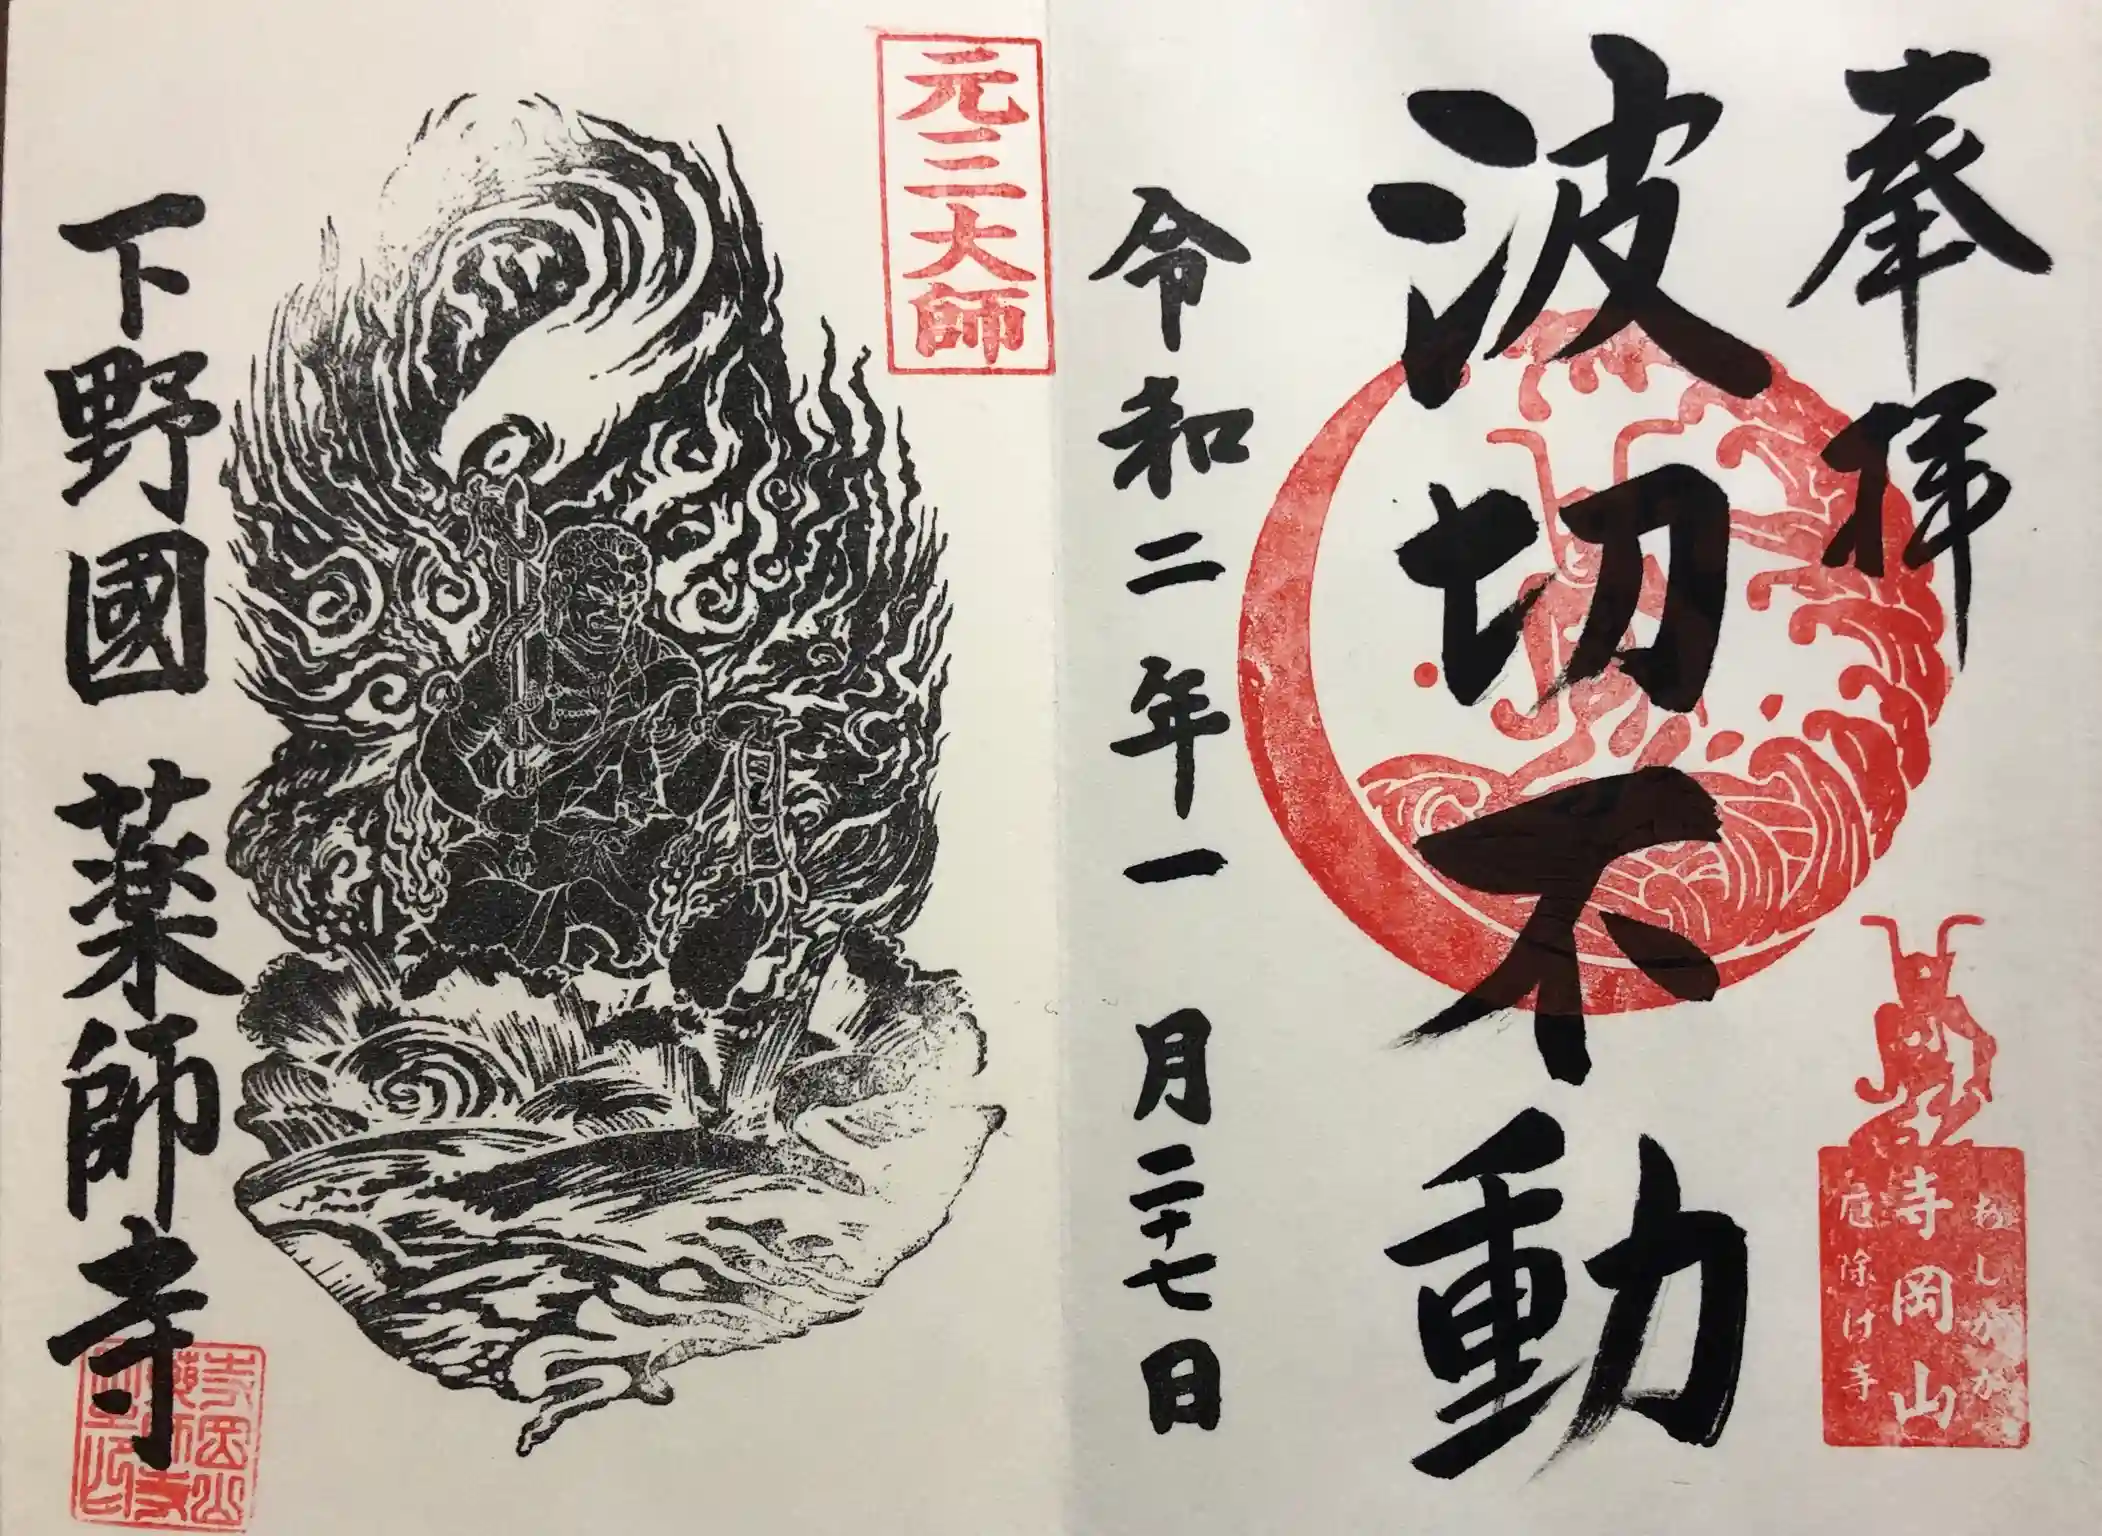 奉拝
波切不動
令和二年一月二十七日
あしかが
寺岡山
厄除け寺
元三大師
下野國 薬師寺